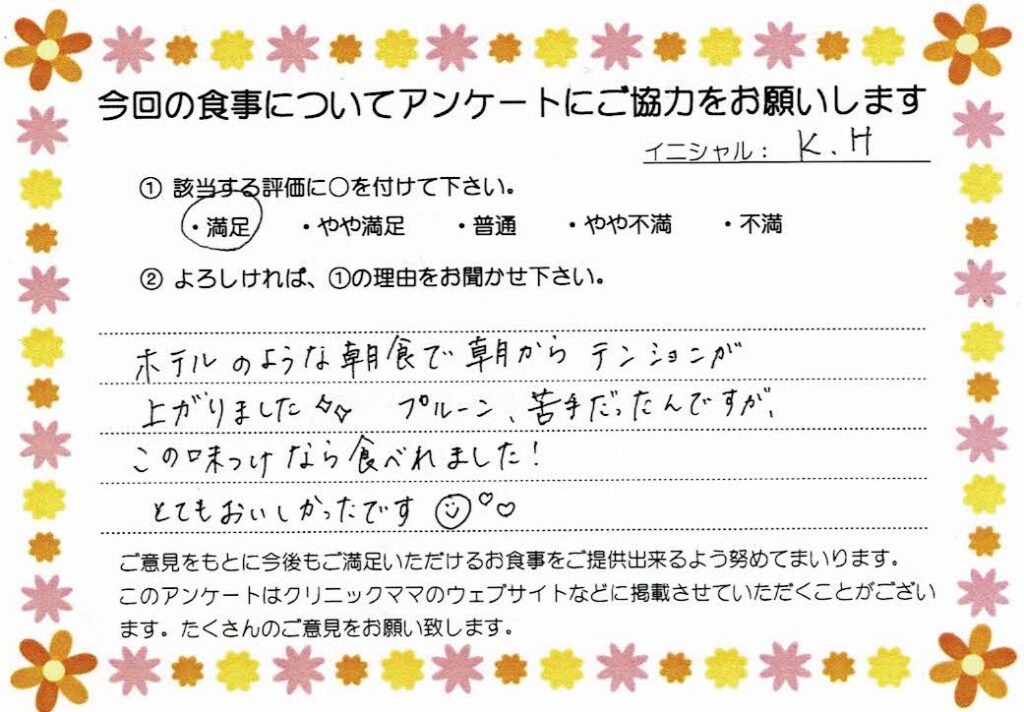 今回の食事についてアンケートにご協力をお願いします
イニシャル： K.H
① 該当する評価に○を付けて下さい。
・満足 ・やや満足 ・普通 ・やや不満 ・不満
② よろしければ、①の理由をお聞かせ下さい。
ホテルのような朝食で朝からテンションが
上がりました✧✧ プルーン、苦手だったんですが、
この味つけなら食べれました！
とてもおいしかったです☺♡♡
ご意見をもとに今後もご満足いただけるお食事をご提供出来るよう努めてまいります。
このアンケートはクリニックママのウェブサイトなどに掲載させていただくことがござい
ます。たくさんのご意見をお願い致します。